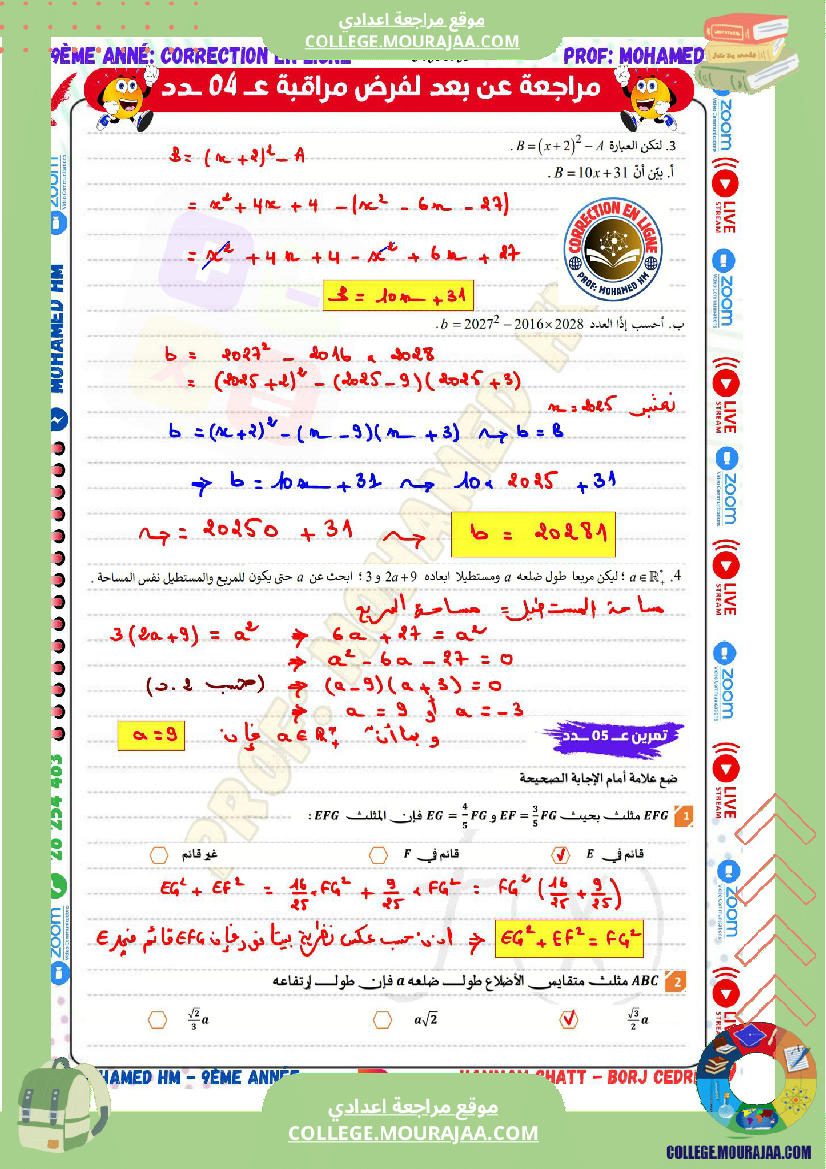 موقع مراجعة اعدادي
COLLEGE.MOURAJAA.COM
9ÈME ANNÉ: CORRECTION EN LIGNE
PROF: MOHAMED
مراجعة عن بعد لفرض مراقبة عـ 04 ـدد
3. لتكن العبارة B = (x+2)² − A .
B = (x+2)² - A
أ. بيّن أنّ B = 10x + 31 .
= x² + 4x + 4 - (x² - 6x - 27)
= x² + 4x + 4 - x² + 6x + 27
B = 10x + 31
CORRECTION EN LIGNE
PROF: MOHAMED HM
ب. أحسب إذًا العدد b = 2027² − 2016×2028 .
b = 2027² - 2016 × 2028
= (2025+2)² - (2025-9)(2025+3)
نعتبر x = 2025
b = (x+2)² - (x-9)(x+3) ⇝ b = B
⇒ b = 10x + 31 ⇝ 10 × 2025 + 31
⇝ = 20250 + 31 ⇝ b = 20281
4. a ∈ ℝ*₊ ؛ ليكن مربعا طول ضلعه a ومستطيلا ابعاده 2a+9 و 3 ؛ ابحث عن a حتى يكون للمربع والمستطيل نفس المساحة .
مساحة المستطيل = مساحة المربع
3(2a+9) = a² ⇒ 6a + 27 = a²
⇒ a² - 6a - 27 = 0
(حسب 2.د) ⇒ (a-9)(a+3) = 0
⇒ a = 9 أو a = -3
وبما أنّ a ∈ ℝ*₊ فإن a = 9
تمرين عـ 05 ـدد
ضع علامة أمام الإجابة الصحيحة
1 EFG مثلث بحيث EF = 3/5 FG و EG = 4/5 FG فإن المثلث EFG :
قائم في E
قائم في F
غير قائم
EG² + EF² = 16/25 × FG² + 9/25 × FG² = FG² (16/25 + 9/25)
⇒ EG² + EF² = FG² اذن حسب عكس نظرية بيتاغور فإن EFG قائم في E
2 ABC مثلث متقايس الأضلاع طول ضلعه a فإن طول إرتفاعه
√3/2 a
a√2
√2/3 a
MOHAMED HM
28 254 483
zoom
LIVE
STREAM
zoom
LIVE
STREAM
zoom
LIVE
STREAM
zoom
LIVE
STREAM
zoom
LIVE
STREAM
zoom
zoom
PROF: MOHAMED HM
HAMED HM - 9ÈME ANNÉE
HAMMAM CHATT - BORJ CEDRI
موقع مراجعة اعدادي
COLLEGE.MOURAJAA.COM
COLLEGE.MOURAJAA.COM